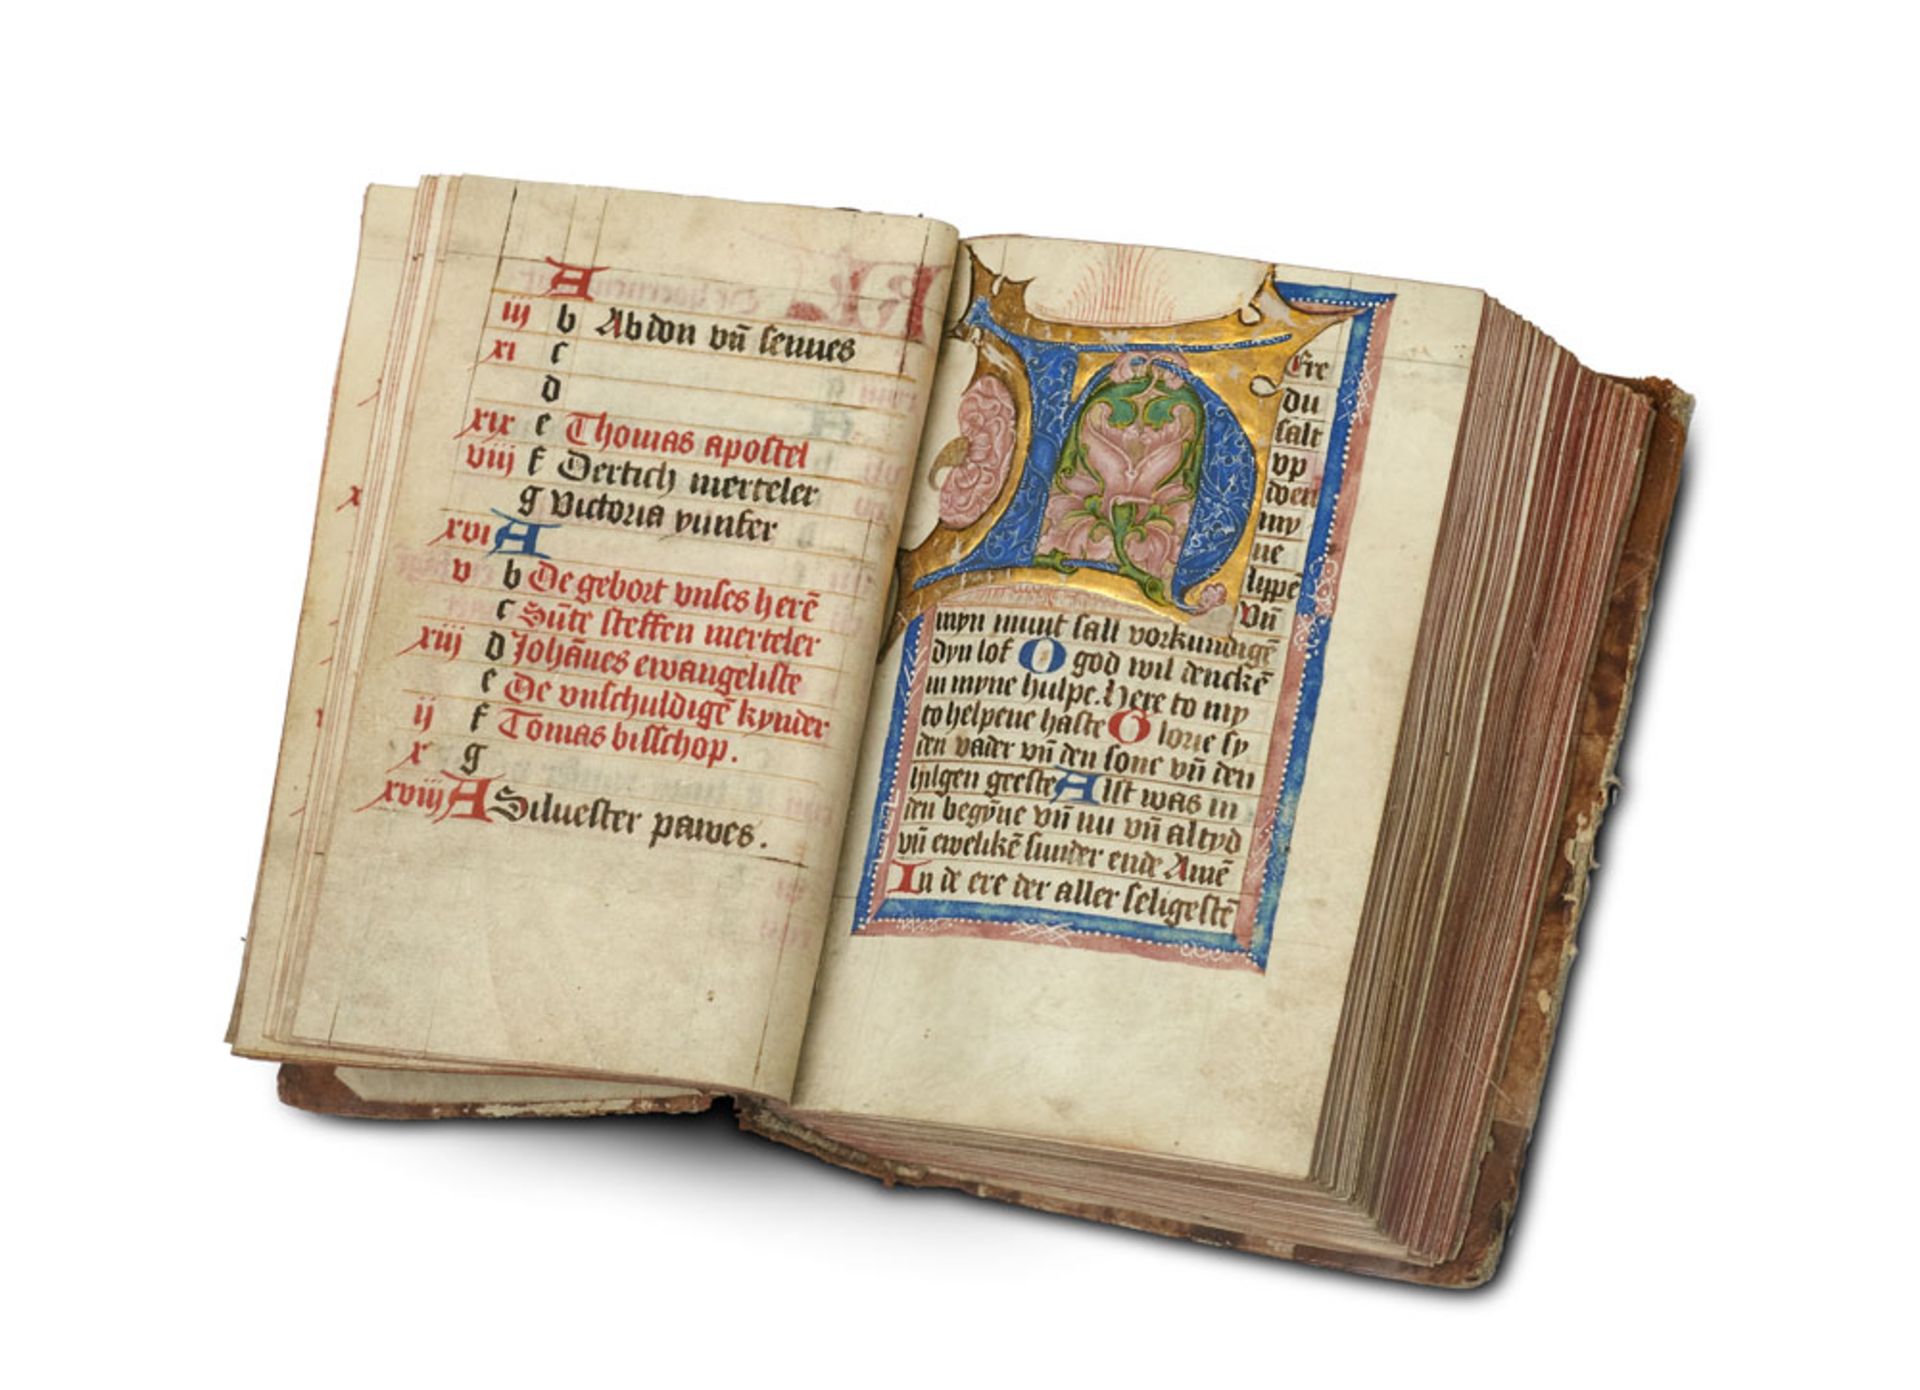 A
iij b Abdon vñ sennes
xi c
d
xix e Thomas apostel
viij f Dertich merteler
g Victoria yunfer
xvi A
v b De gebort vnses herē
c Sūte steffen merteler
xiij d Johānes ewangeliste
e De vnschuldigē kynder
ij f Tomas bisschop.
x g
xviij A Siluester pawes.
H Ere
du
salt
vp
doen
my
ne
lippē
Vñ
myn munt sall vorkundigē
dyn lof O god wil denckē
in myne hulpe. Here to my
to helpene haste G lorie sy
den vader vñ den sone vñ den
hilgen geeste A lst was in
den begȳne vñ nu vñ altyd
vñ ewelikē sunder ende Amē
In de ere der aller seligestē